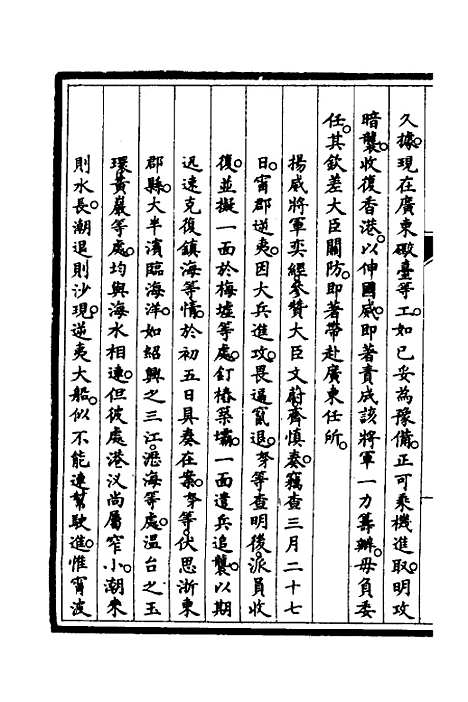 久據。現在廣東礮臺等工。如已妥為豫備。正可乘機進取。明攻
暗襲。收復香港。以伸國威。即著責成該將軍一力籌辦。毋負委
任。其欽差大臣關防。即著帶赴廣東任所。
揚威將軍奕經參贊大臣文蔚齊慎奏。竊查三月二十七
日。甯郡逆夷。因大兵進攻。畏逼竄退。奴等查明後。派員收
復。並擬一面於梅墟等處。釘樁築壩。一面遣兵追襲。以期
迅速克復鎮海等情。於初五日具奏在案。奴等伏思浙東
郡縣。大半濱臨海洋。如紹興之三江。瀝海等處。温台之玉
環黃巖等處。均與海水相連。但彼處港汊尚屬窄小。潮來
則水長。潮退則沙現。逆夷大船。似不能連幫駛進。惟甯波